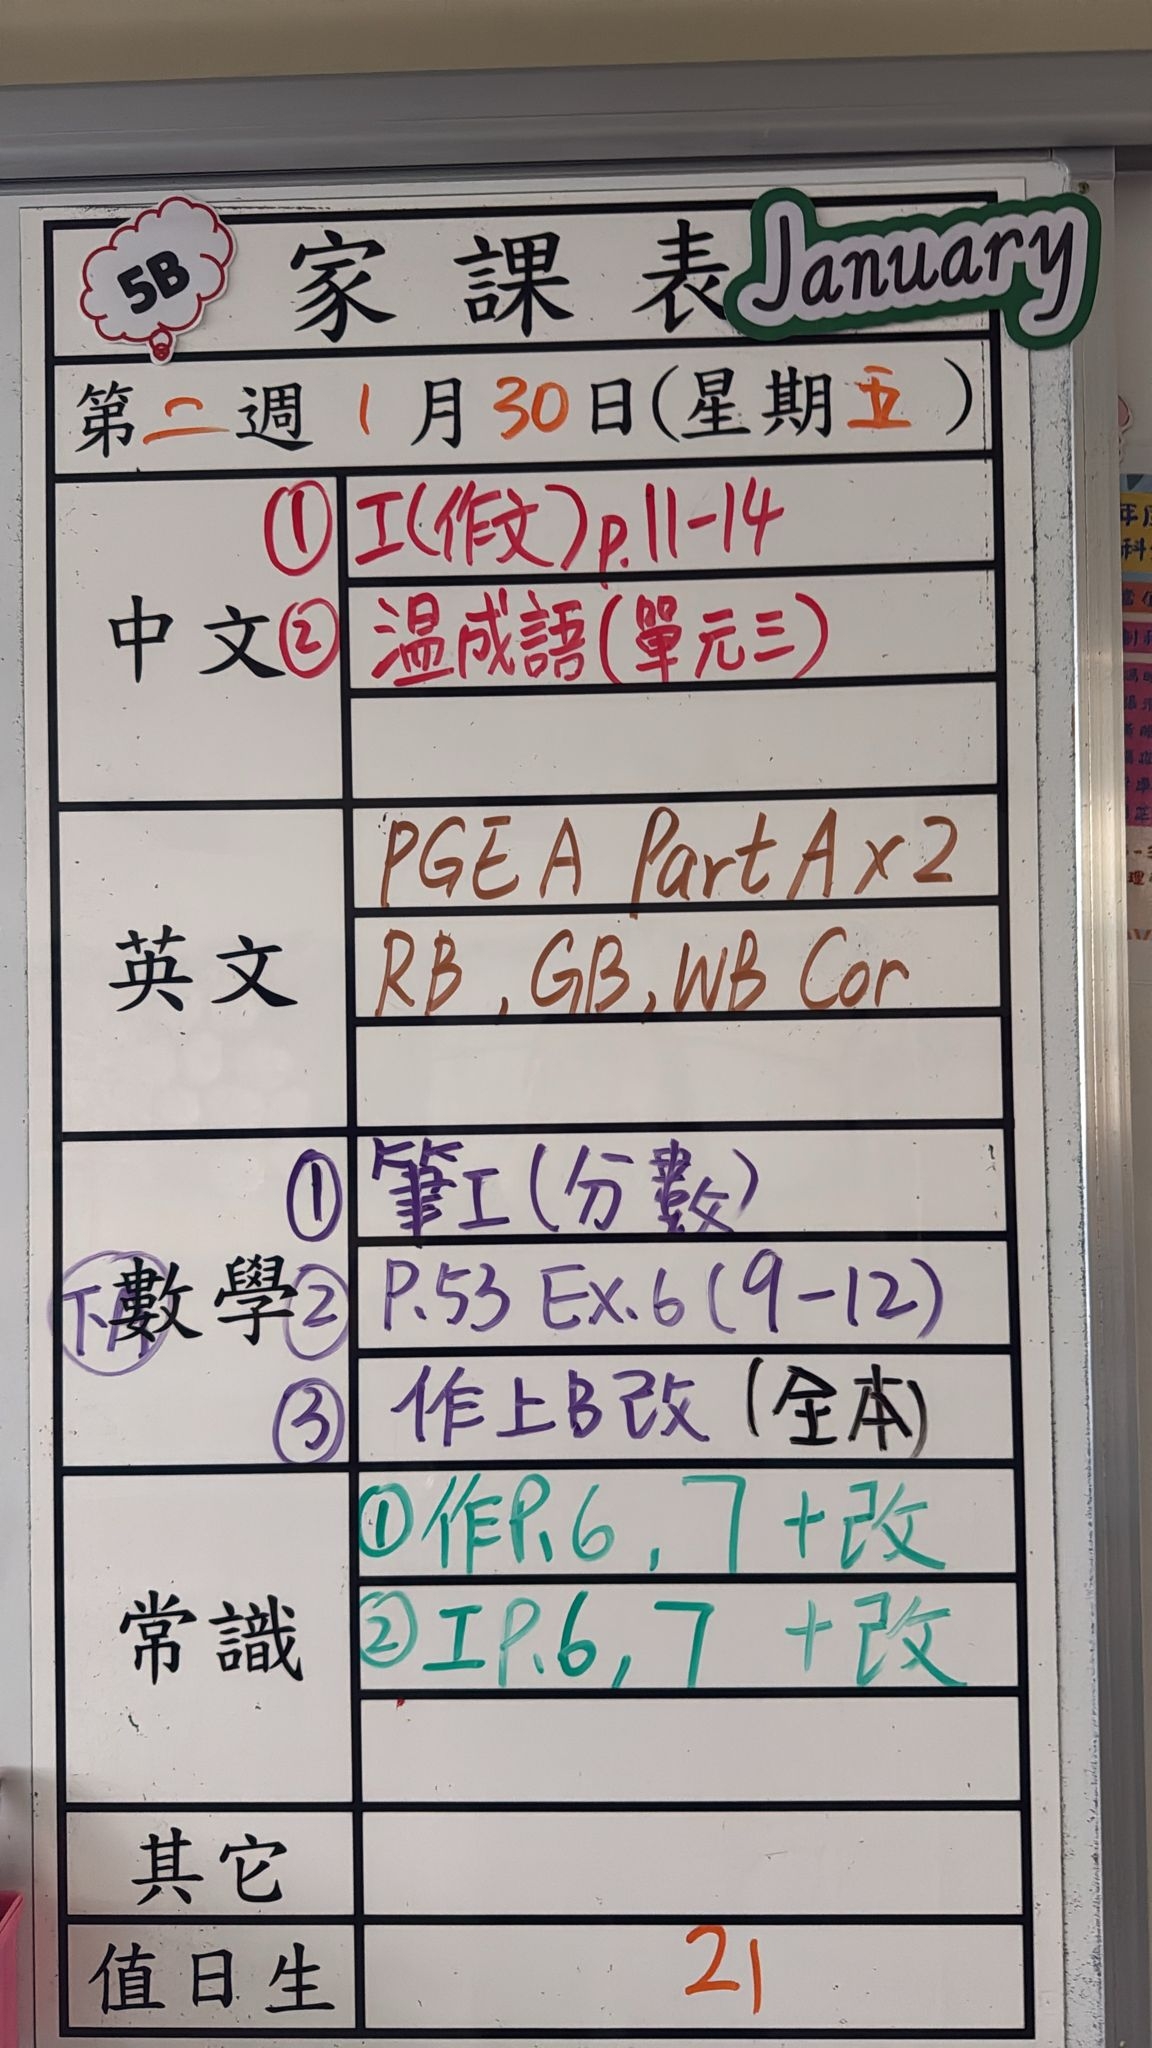 5B 家課表 January
第二週 1月30日(星期五)
中文 ① 工(作文)p.11-14
② 温成語(單元三)
英文 PGEA Part A x 2
RB, GB, WB Cor
數學 ① 筆工(分數)
② P.53 Ex.6 (9-12)
③ 作上B改 (全本)
常識 ①作P.6, 7 +改
②工P.6, 7 +改
其它
值日生 21